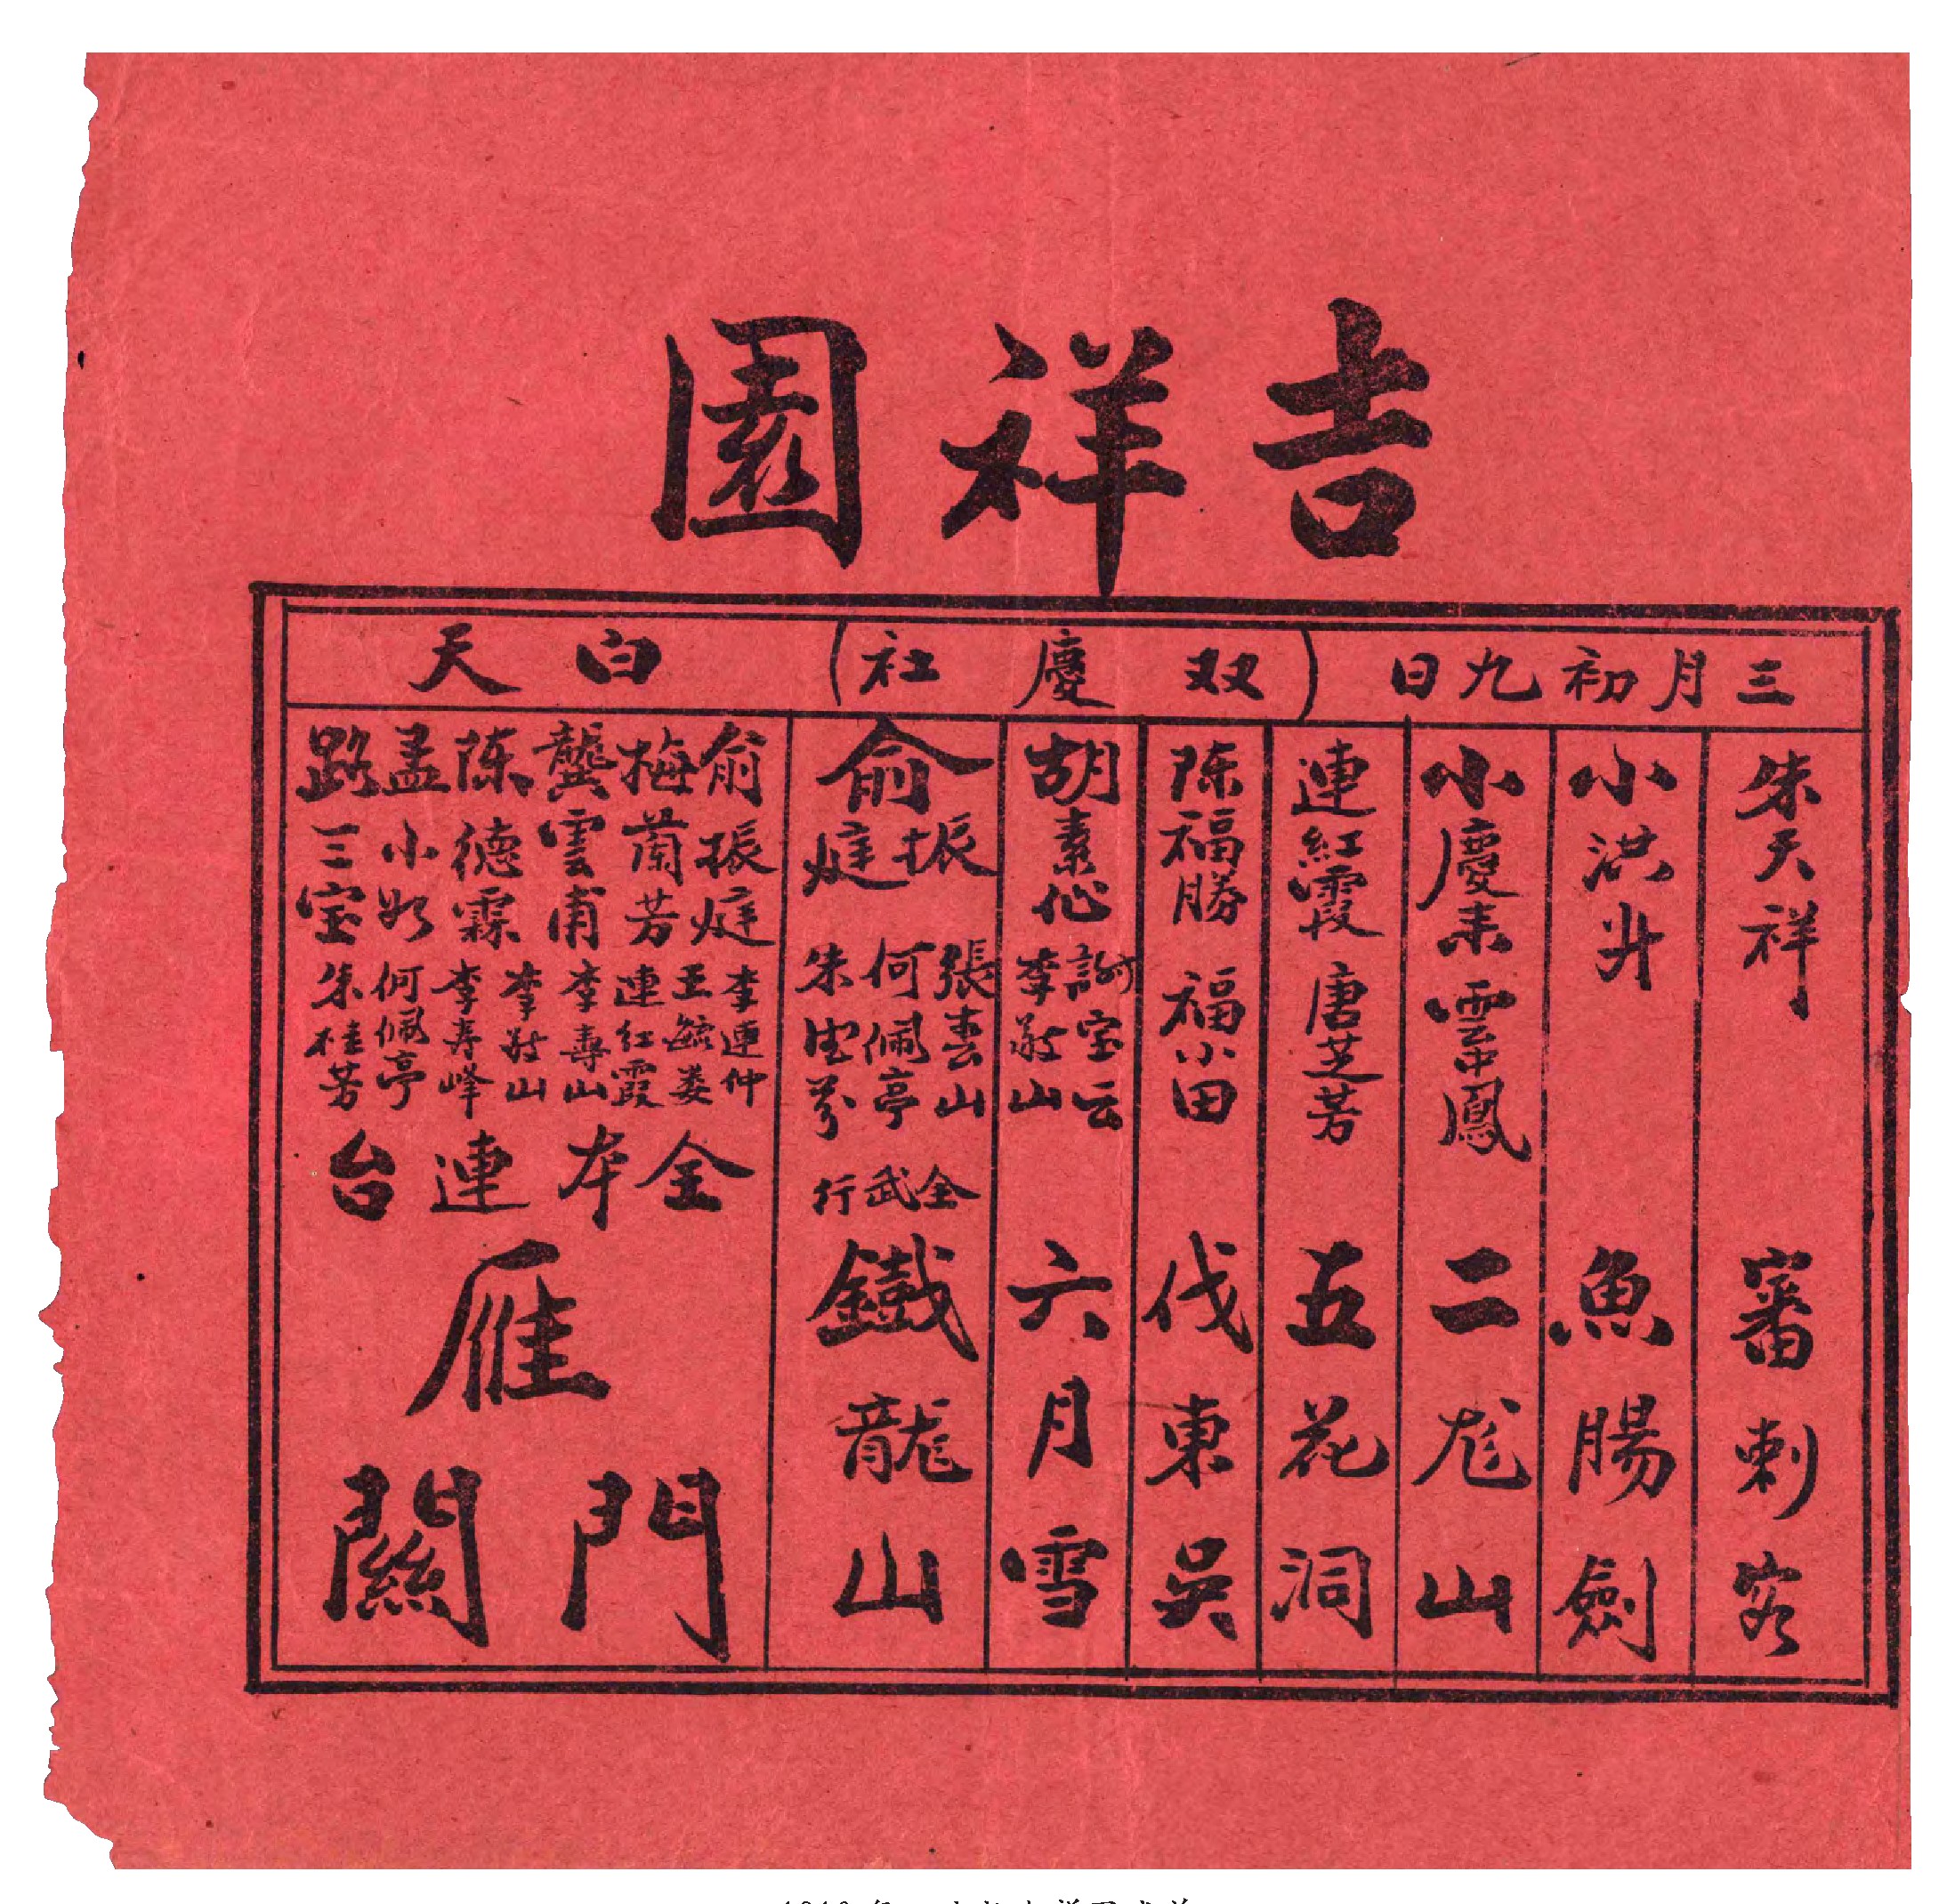 吉祥園
三月初九日（双慶社）白天
朱天祥
審刺客
小洪升
魚腸劍
小慶來 雲中鳳
二龙山
連紅霞 唐芝芳
五花洞
陈福勝 福小田
伐東吳
胡素心
宝云
李敬山
六月雪
俞振庭
張春山
何佩亭
朱
全武行
鐵龍山
俞振庭
梅蘭芳
龔雲甫
陈德霖
孟小如
路三宝
李連仲
王毓
連紅霞
李壽山
李敬山
李寿峰
何佩亭
朱桂芳
全本連台
雁門關